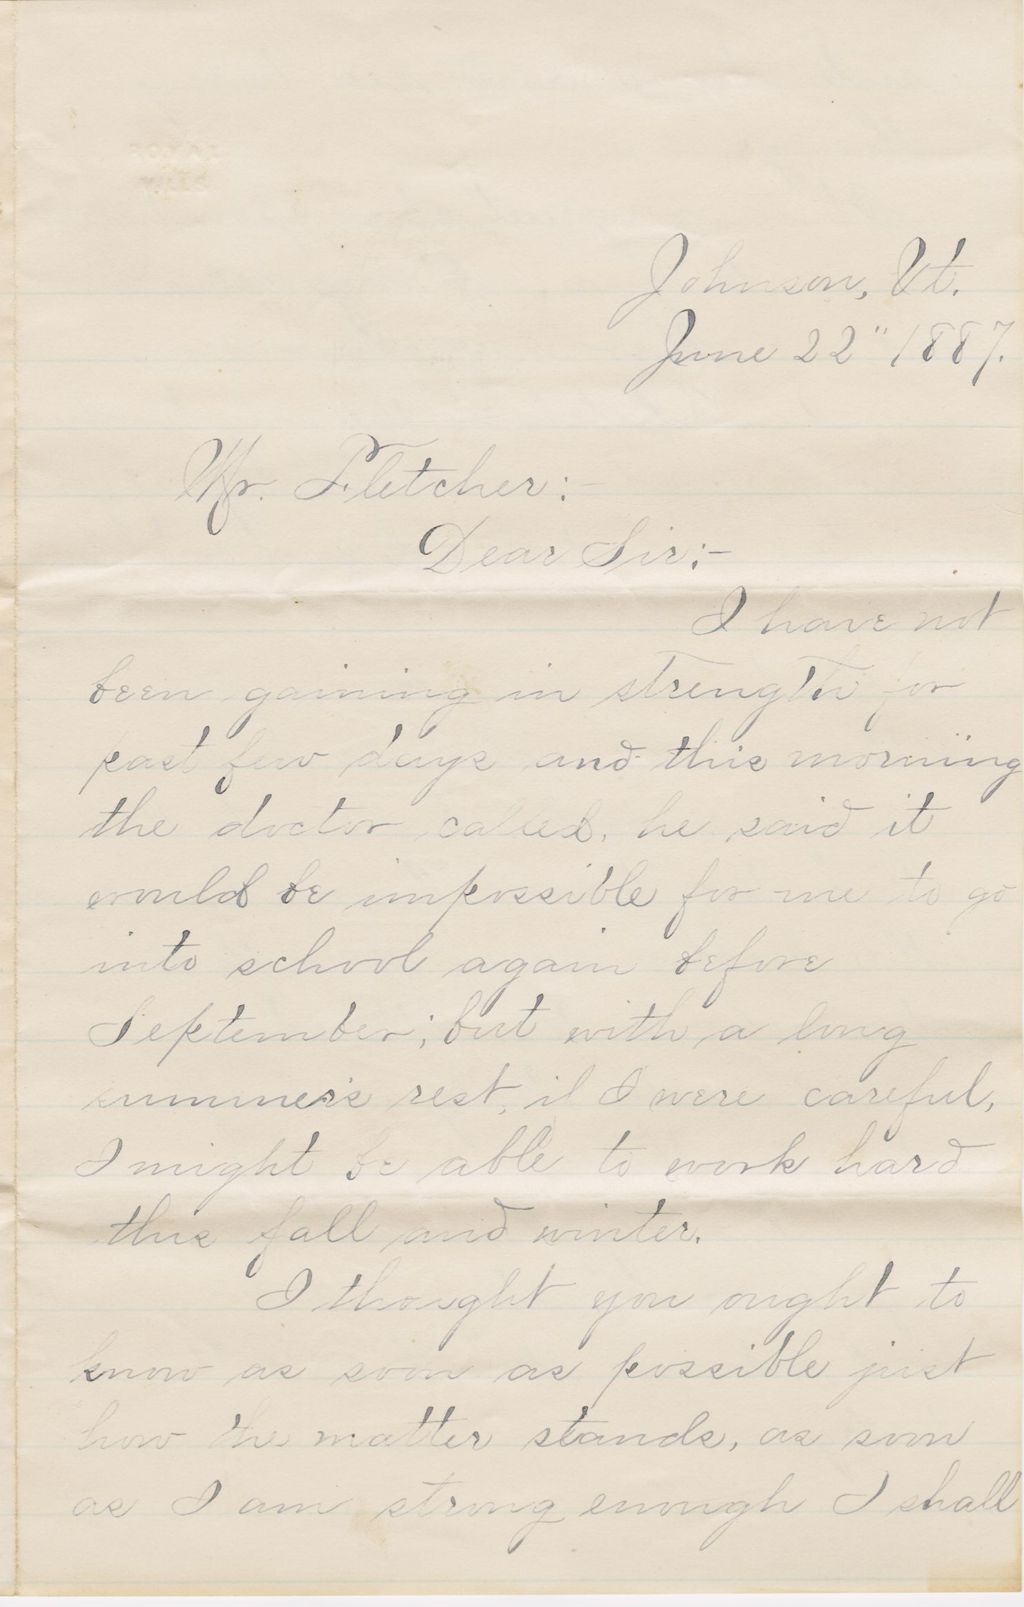 Johnson, Vt.
June 22" 1887.
Mr. Fletcher:-
Dear Sir:-
I have not
been gaining in strength for
past few days and this morning
the doctor called, he said it
would be impossible for me to go
into school again before
September; but with a long
summer's rest, if I were careful,
I might be able to work hard
this fall and winter.
I thought you ought to
know as soon as possible just
how the matter stands, as soon
as I am strong enough I shall